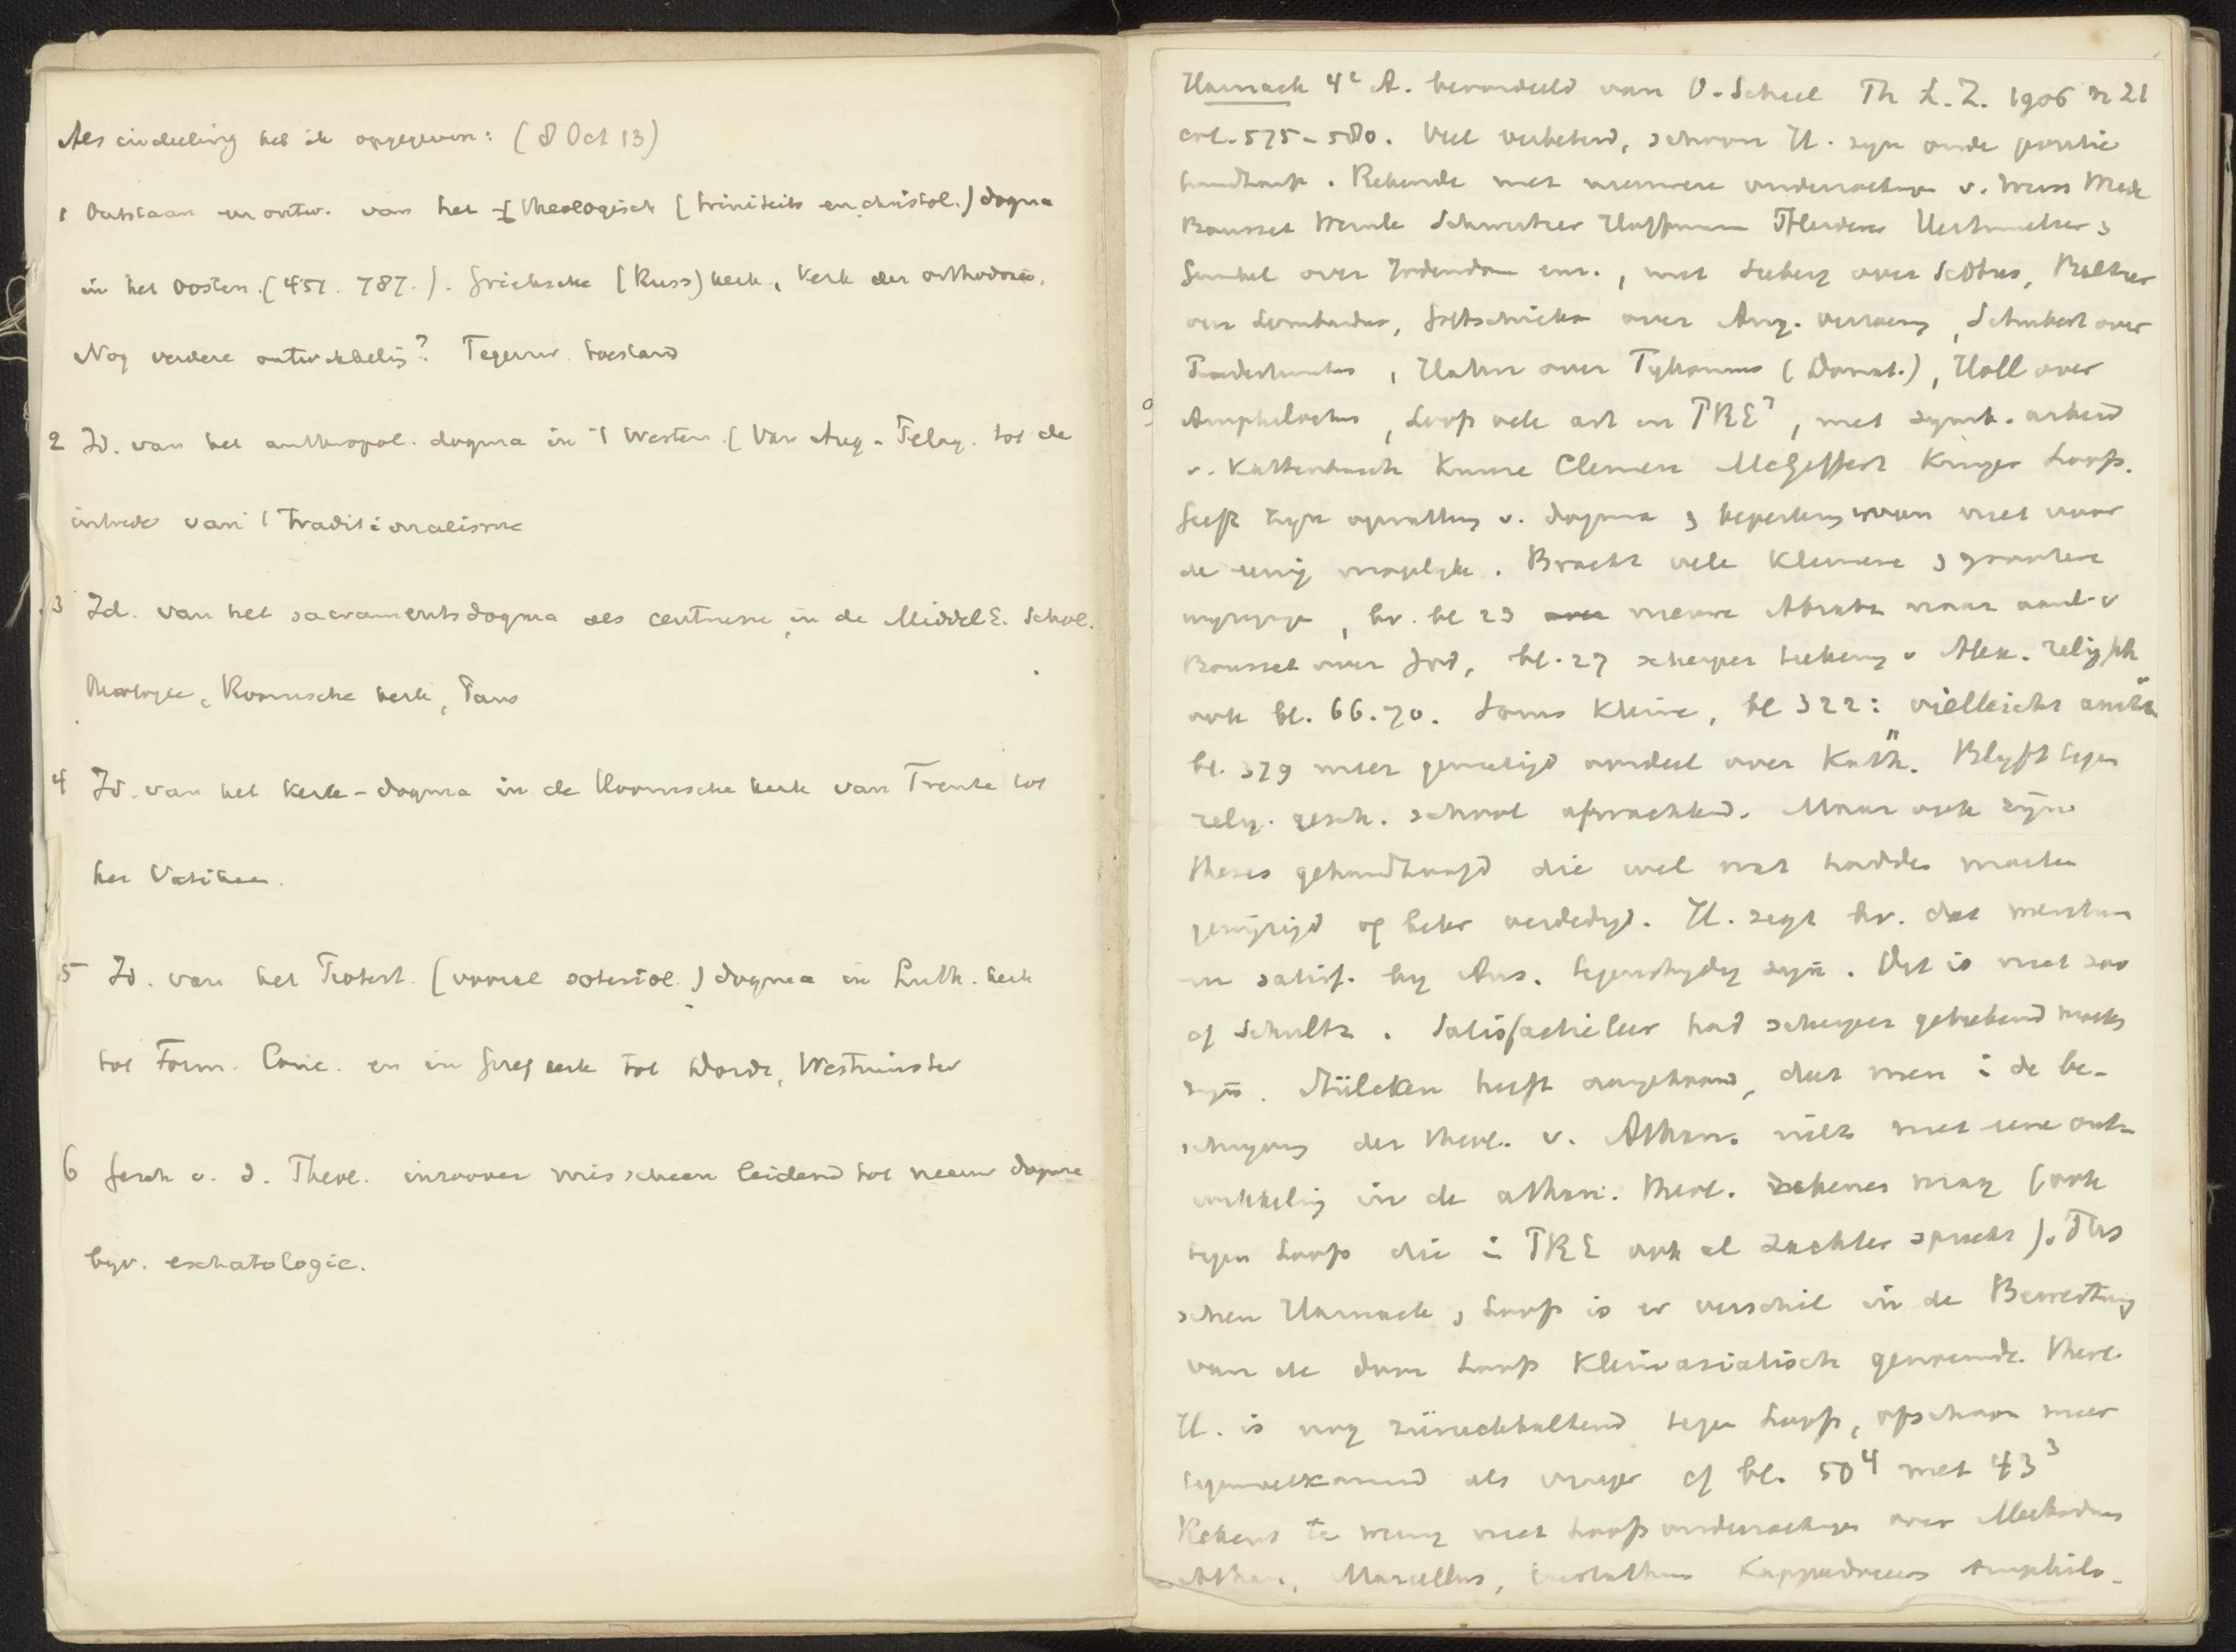 Als indeeling heb ik opgegeven: (8 Oct 13)
1 Ontstaan en ontw. van het theologisch (triniteits en christol.) dogma
in het Oosten. (451. 787.). Grieksche (Russ) kerk, kerk der orthodoxie.
Nog verdere ontwikkeling? Tegenw. toestand
2 Id. van het anthropol. dogma in 't Westen. (Van Aug - Pelag. tot de
intrede van 't Traditionalisme
3 Id. van het sacramentsdogma als centrum, in de MiddelE. Schol.
theologie, Roomsche kerk, Paus
4 Id. van het kerk-dogma in de Roomsche kerk van Trente tot
het Vaticaan.
5 Id. van het Protest. (vooral soteriol.) dogma in Luth. kerk
tot Form. Conc. en in Geref kerk tot Dordr, Westminster
6 Gesch v. d. Theol. inzoover misschien leidend tot nieuw dogma
byv. eschatologie.
Harnack 4e A. beoordeeld van O. Scheel Th L. Z. 1906 n 21
col. 575-580. Veel verbeterd, schoon H. zyn oude positie
handhaaft. Rekende met nieuwere onderzoekingen v. Weiss
Bousset Wernle Schweitzer Hoffmann Pfleiderer
Gunkel over Jodendom enz., met Seeberg over Scotus, Baltzer
over Lombardus, Gottschick over Aug. verzoening, Schubert over
Praedestinatus, Hahn over Tychonius (Donat.), Holl over
Amphilochius, Loofs vele art in PRE3, met symb. arbeid
v. Kattenbusch Kunze Clemen McGiffert Kruger Loofs.
Geeft zyn opvatting v. dogma & beperking ervan niet voor
de eenig mogelyke. Bracht vele kleinere & grootere
wyzigingen, bv. bl 23 nieuwe Absatz naar aanl. v
Bousset over Jod, bl. 27 scherper teekening v Alex. relig ph
ook bl. 66.70. Soms kleine, bl 322: vielleicht
bl. 379 meer gematigd oordeel over Kath. Blyft tegen
relig. gesch. school afwachtend. Maar ook zyn
theses gehandhaafd die wel wat hadden moeten
gewyzigd of beter verdedigd. H. zegt bv. dat meritum
en satisf. by Ans. tegenstrydig zyn. Dit is niet zoo
cf Schultz. Satisfactieleer had scherper geteekend moeten
zyn. Stülcken heeft aangetoond, dat men i de be-
schryving der theol. v. Athan. niet met eene ont-
wikkeling in de athan. theol. rekenen mag (ook
tegen Loofs die i PRE ook al zachter spreekt). Tus
schen Harnack & Loofs is er verschil in de Bewertung
van de door Loofs Kleinasiatisch genoemde theol.
H. is nog zurückhaltend tegen Loofs, ofschoon meer
tegemoetkomend als vroeger cf bl. 50⁴ met 43³
Rekent te weinig met Loofs onderzoekingen over Methodius
Athan., Marcellus, Eustathius Kappadociers Amphilo-